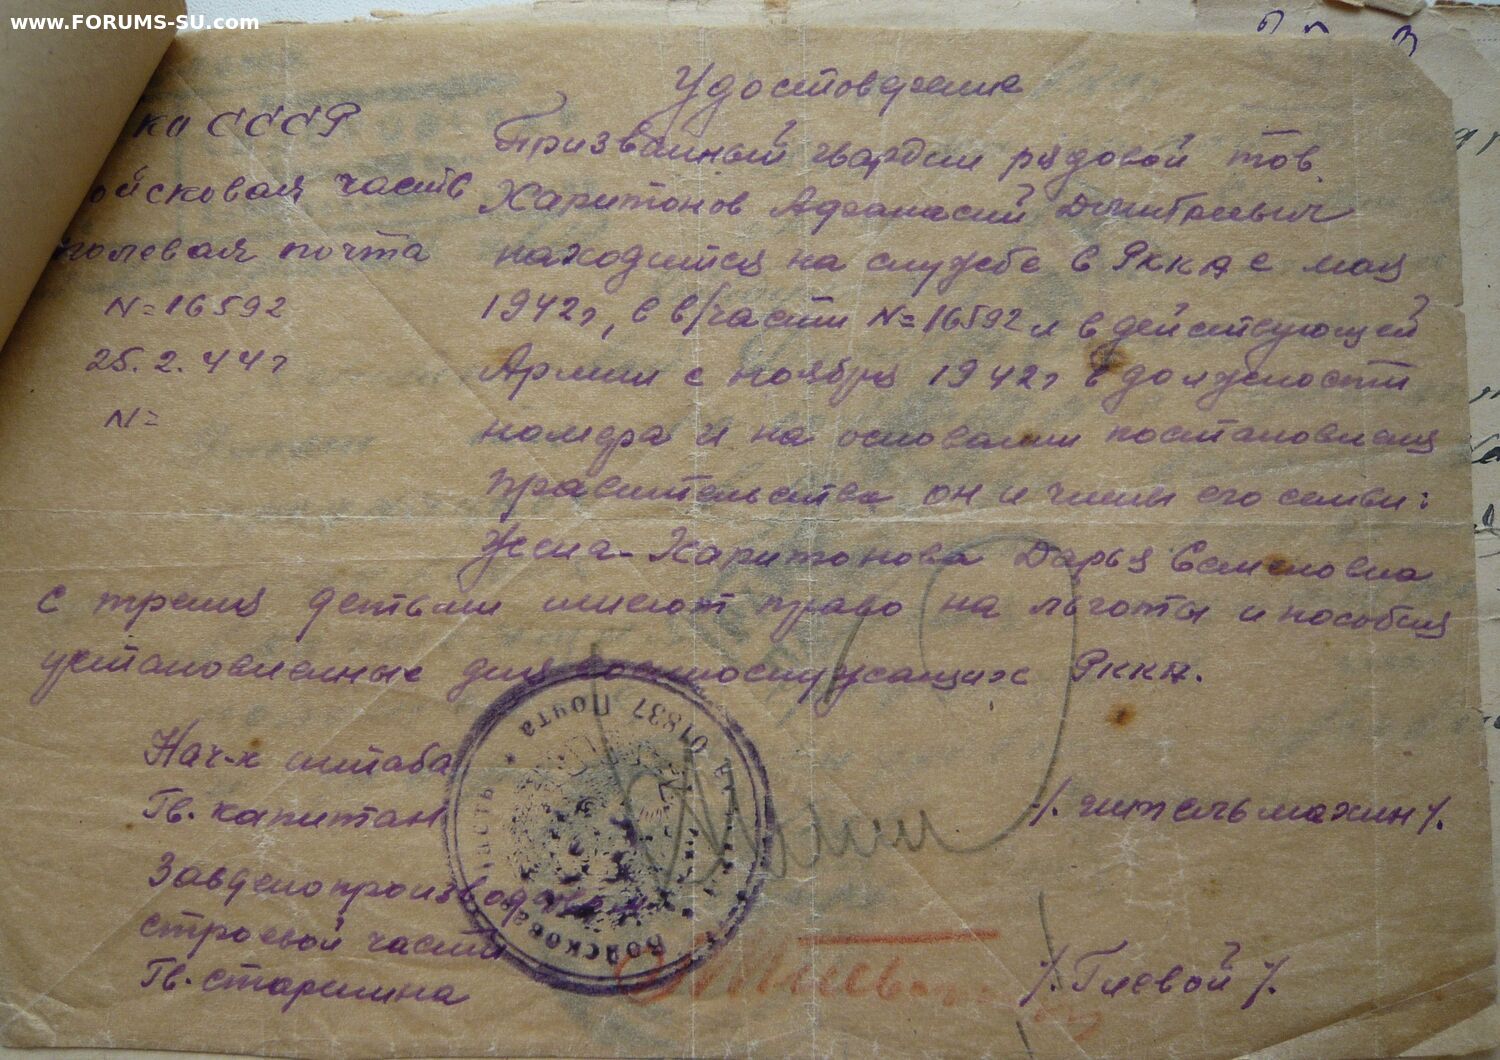 www.FORUMS-SU.com
Удостоверение
ко СССР
ойсковая часть
полевая почта
N=16592
25.2.44г
N=
Призванный гвардии рядовой тов.
Харитонов Афанасий Дмитриевич
находится на службе в РККА с мая
1942г, в в/части N=16592 и в действующей
Армии с ноября 1942г в должности
номера и на основании постановления
правительства он и члены его семьи:
Жена-Харитонова Дарья Семеновна
с тремя детьми имеют право на льготы и пособия
установленные для военнослужащих РККА.
Нач-к штаба
Гв. капитан /. чительмахин /.
Завделопроизводством
строевой части
Гв. старшина /. Гиевой /.
Войсковая часть * 01837 Почта *